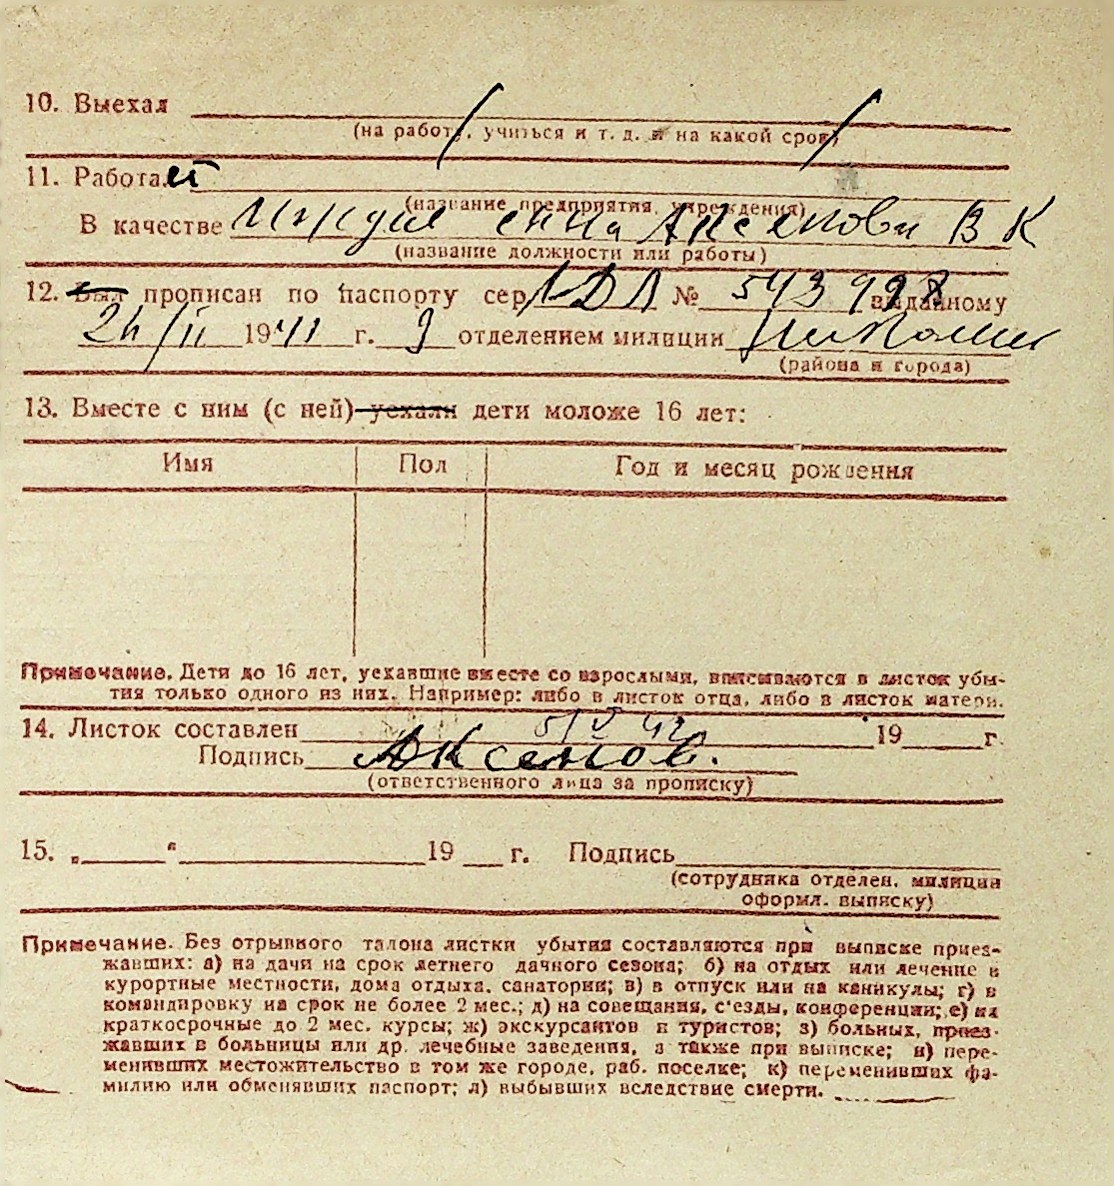 10. Выехал
(на работу, учиться и т. д. и на какой срок)
11. Работает
(название предприятия, учреждения)
В качестве Иждив сына Аксенова В К
(название должности или работы)
12. Был прописан по паспорту сер № 543998 выданному
24/II 1941 г. 9 отделением милиции
(района и города)
13. Вместе с ним (с ней) уехали дети моложе 16 лет:
Имя Пол Год и месяц рождения
Примечание. Дети до 16 лет, уехавшие вместе со взрослыми, вписываются в листок убы-
тия только одного из них. Например: либо в листок отца, либо в листок матери.
14. Листок составлен 5/V 42 19 г.
Подпись Аксенов.
(ответственного лица за прописку)
15. „ “ 19 г. Подпись
(сотрудника отделен. милиции
оформл. выписку)
Примечание. Без отрывного талона листки убытия составляются при выписке приез-
жавших: а) на дачи на срок летнего дачного сезона; б) на отдых или лечение в
курортные местности, дома отдыха, санатории; в) в отпуск или на каникулы; г) в
командировку на срок не более 2 мес.; д) на совещания, с'езды, конференции; е) на
краткосрочные до 2 мес. курсы; ж) экскурсантов и туристов; з) больных, приез-
жавших в больницы или др. лечебные заведения, а также при выписке; и) пере-
менивших местожительство в том же городе, раб. поселке; к) переменивших фа-
милию или обменявших паспорт; л) выбывших вследствие смерти.